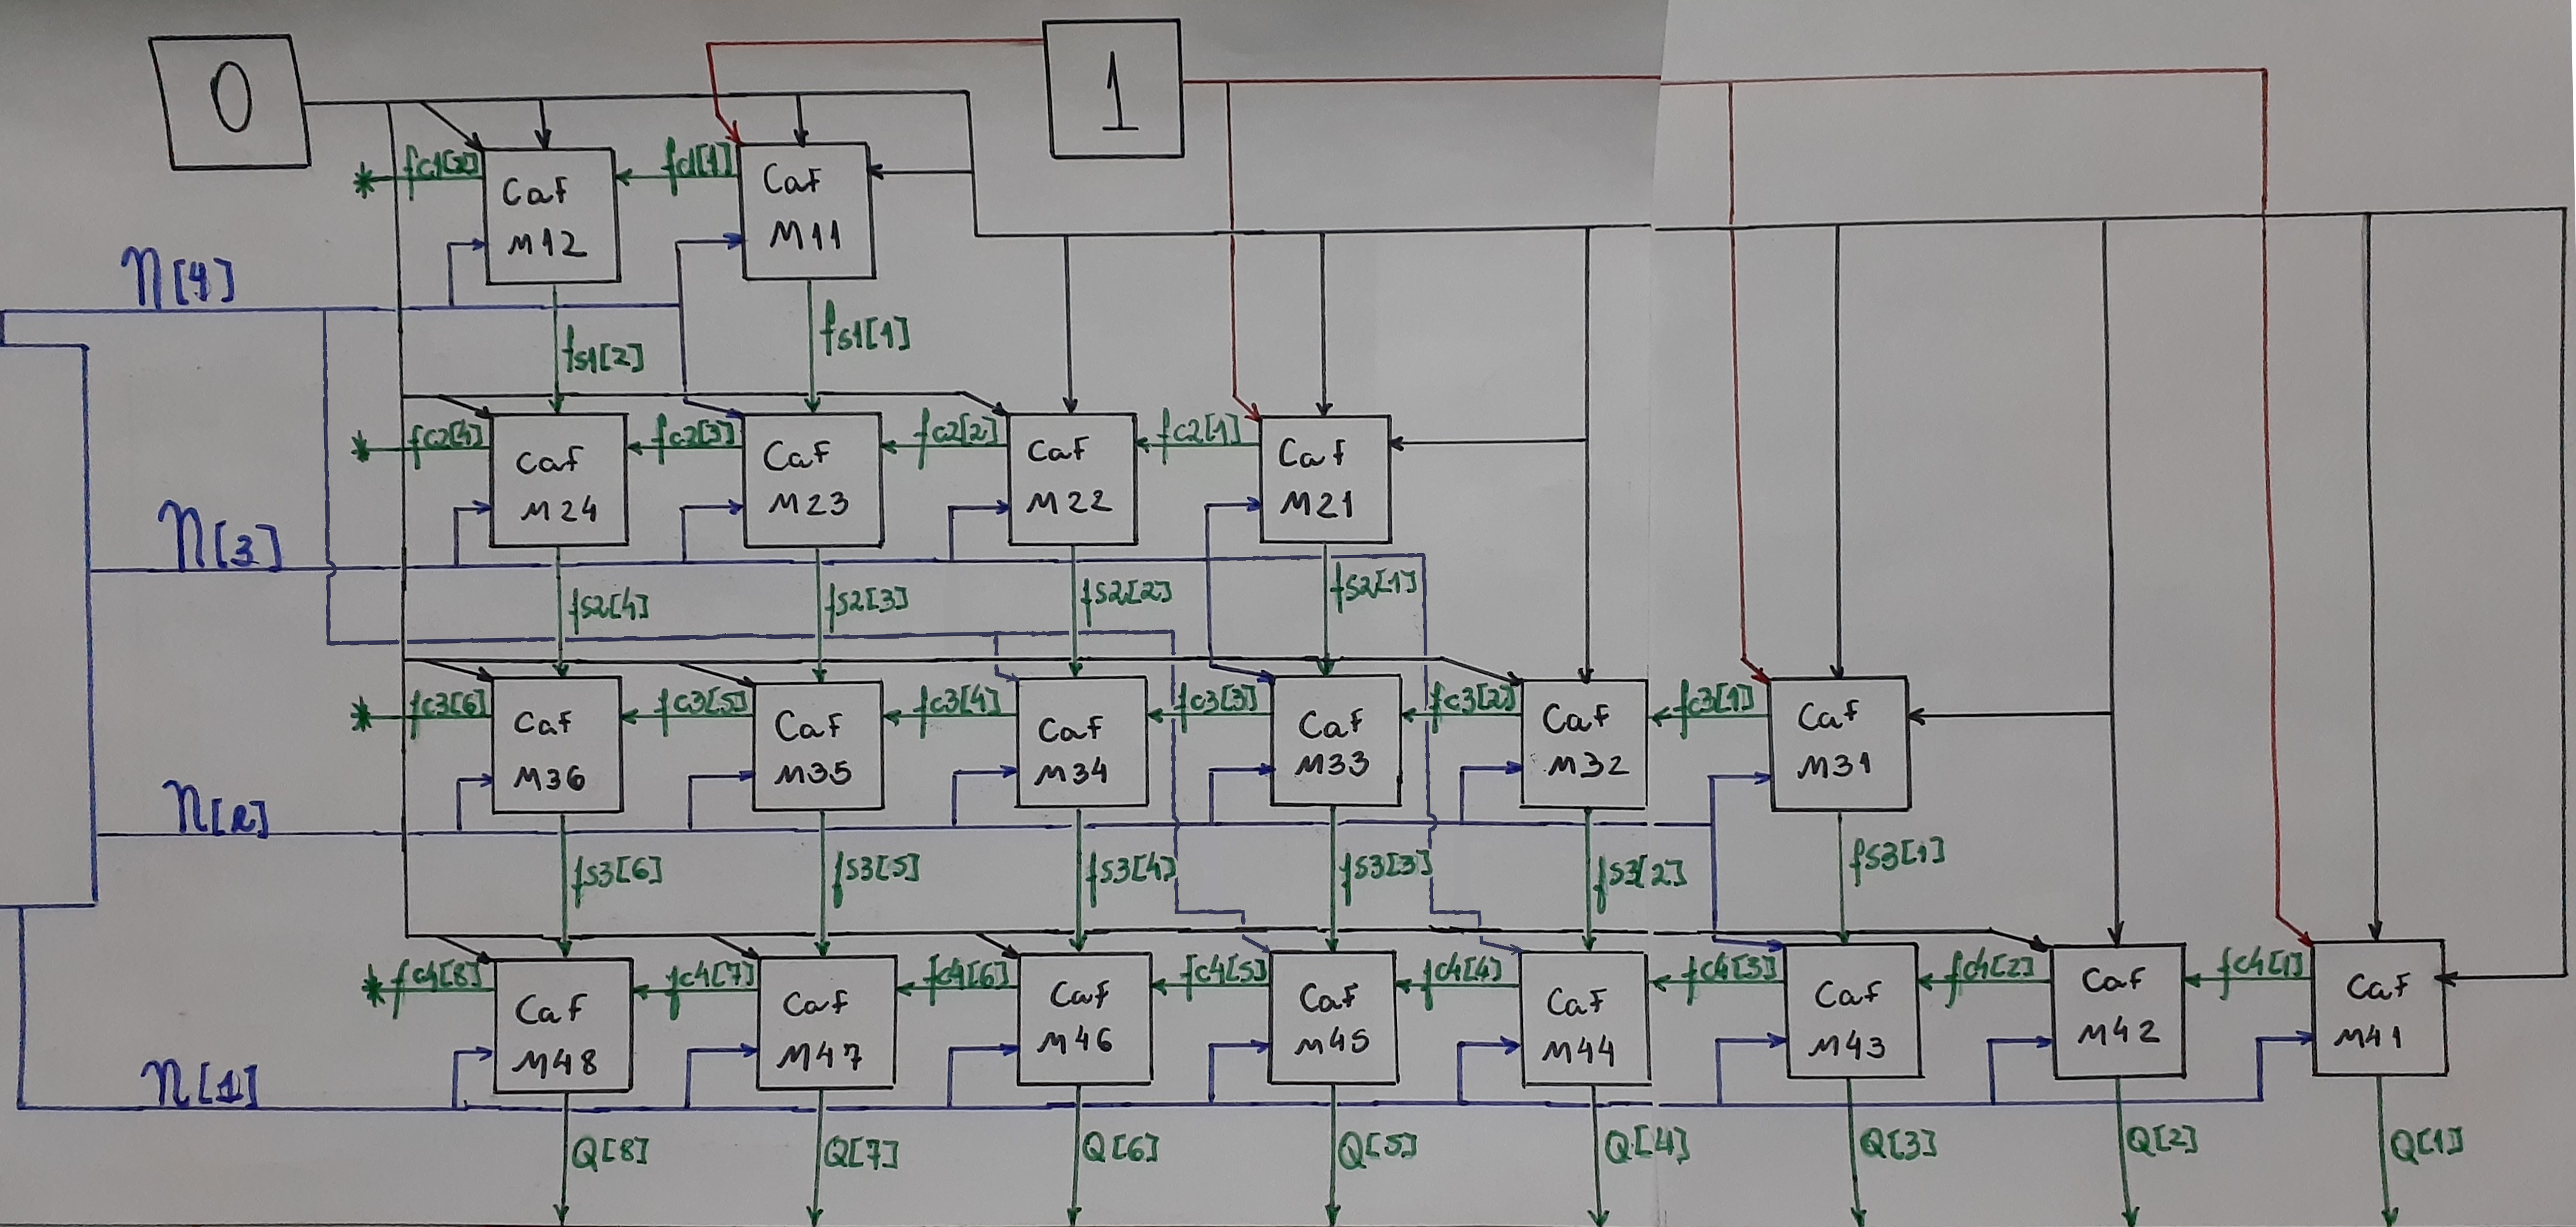 0
1
* fc1[2] Caf M12 fc1[1] Caf M11
n[4]
fs1[2] fs1[1]
* fc2[4] Caf M24 fc2[3] Caf M23 fc2[2] Caf M22 fc2[1] Caf M21
n[3]
fs2[4] fs2[3] fs2[2] fs2[1]
* fc3[6] Caf M36 fc3[5] Caf M35 fc3[4] Caf M34 fc3[3] Caf M33 fc3[2] Caf M32 fc3[1] Caf M31
n[2]
fs3[6] fs3[5] fs3[4] fs3[3] fs3[2] fs3[1]
* fc4[8] Caf M48 fc4[7] Caf M47 fc4[6] Caf M46 fc4[5] Caf M45 fc4[4] Caf M44 fc4[3] Caf M43 fc4[2] Caf M42 fc4[1] Caf M41
n[1]
Q[8] Q[7] Q[6] Q[5] Q[4] Q[3] Q[2] Q[1]